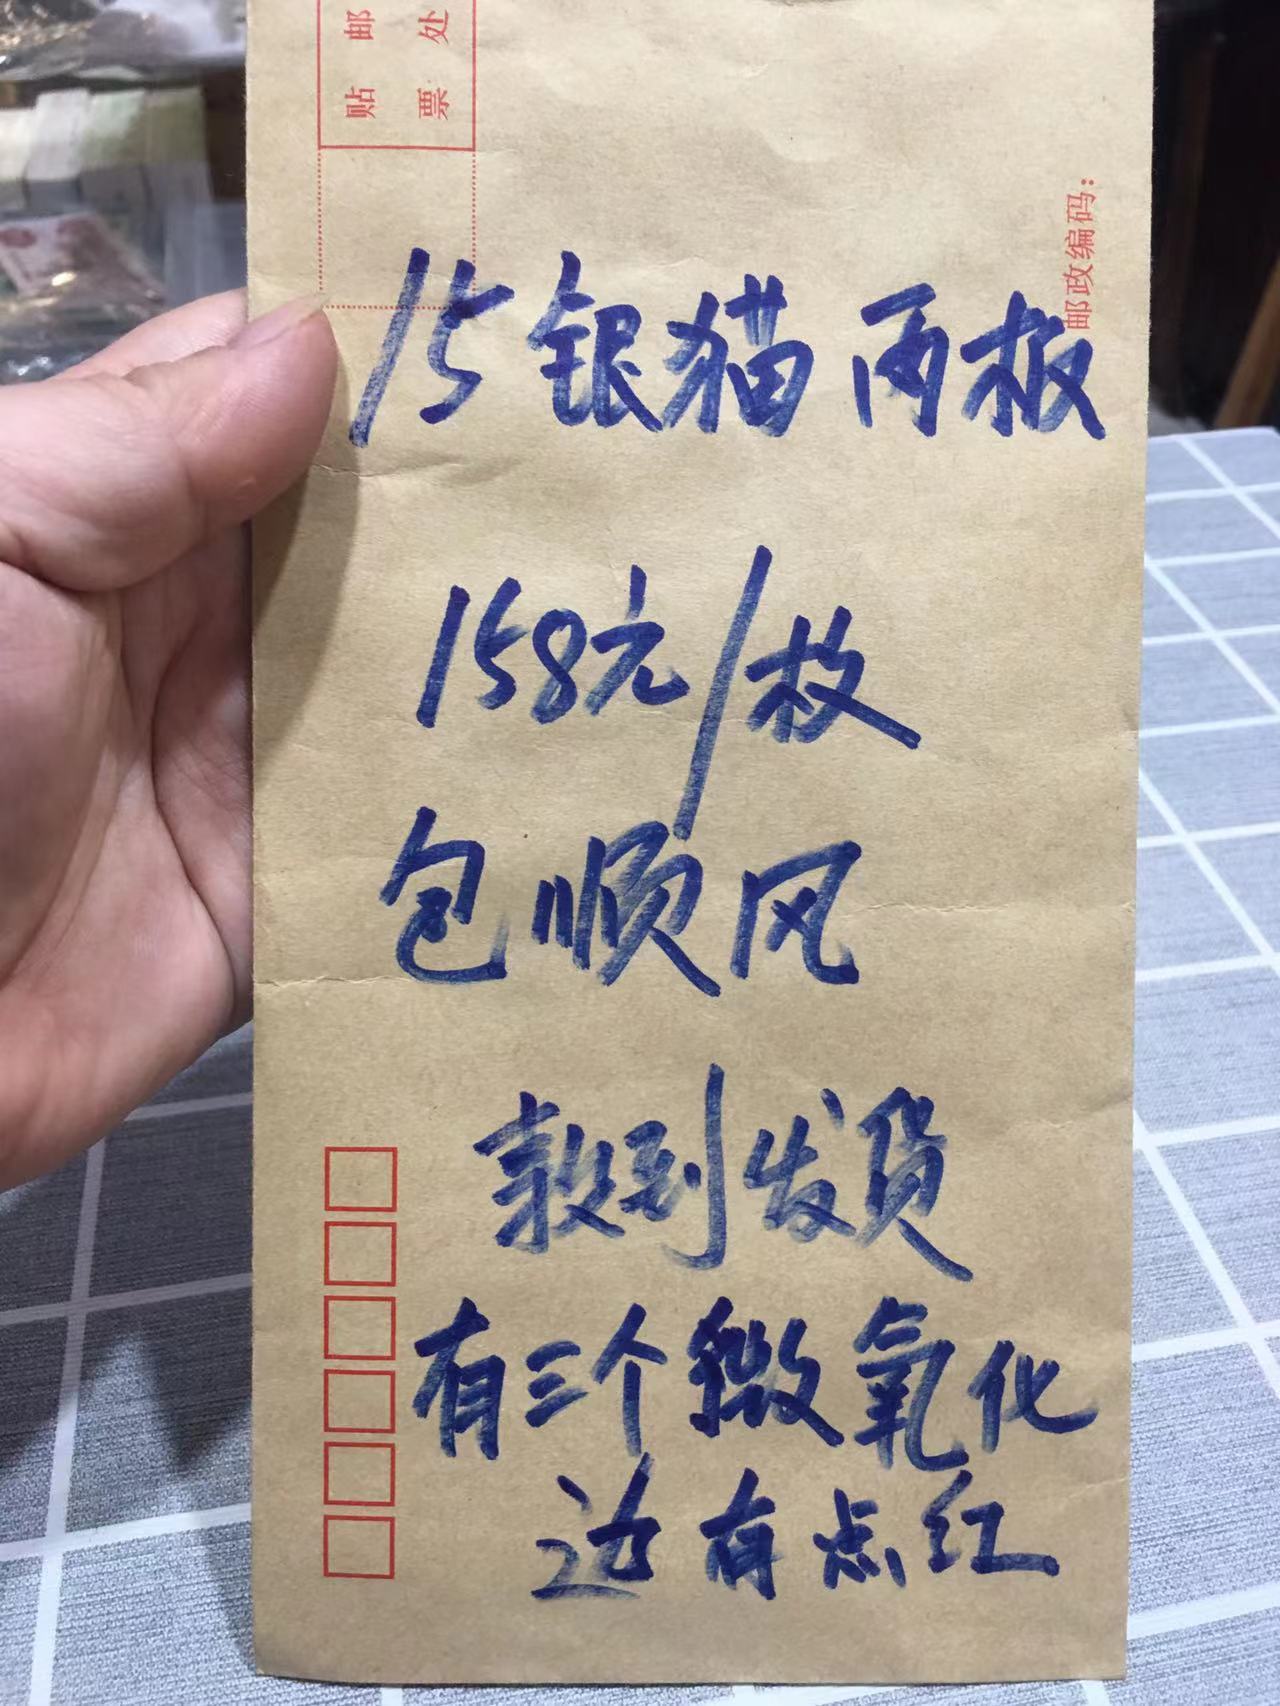 贴邮
票处
邮政编码：
15银猫两板
158元/枚
包顺风
款到发货
有三个微氧化
边有点红